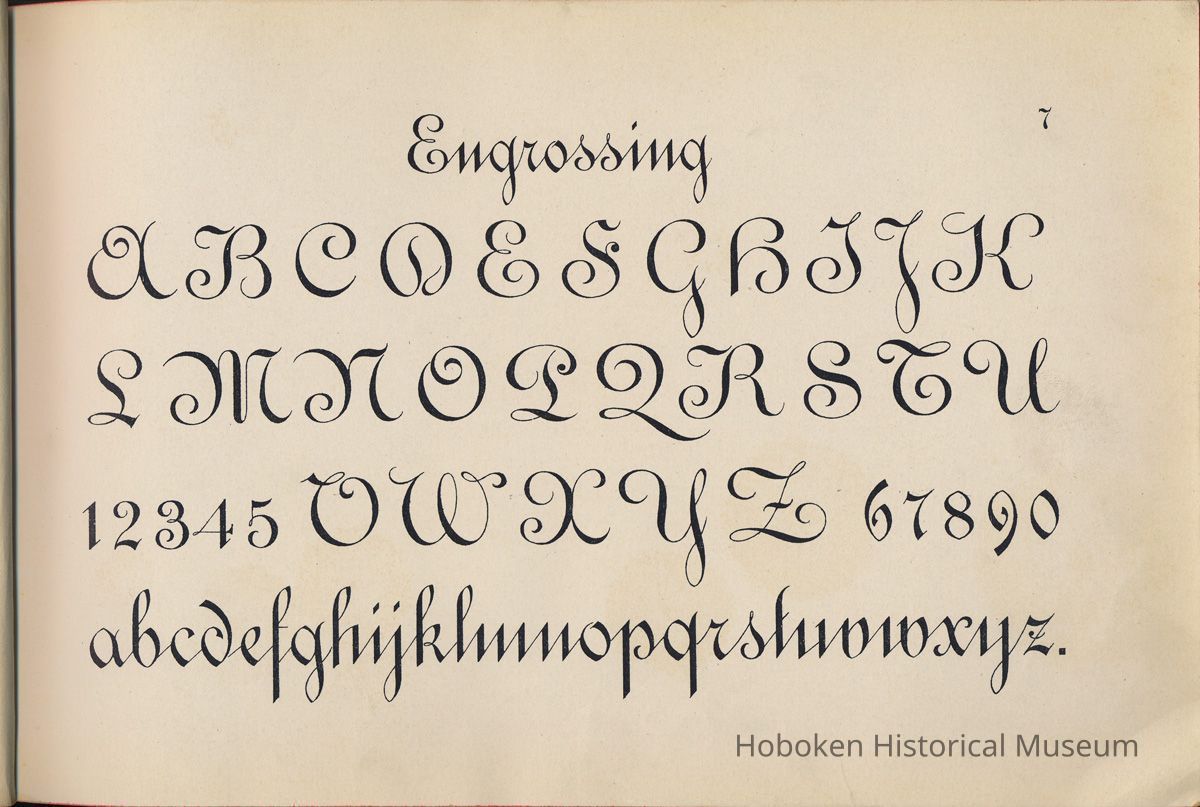 7
Engrossing
A B C D E F G H I J K
L M N O P Q R S T U
1 2 3 4 5 V W X Y Z 6 7 8 9 0
abcdefghijklmnopqrstuvwxyz.
Hoboken Historical Museum